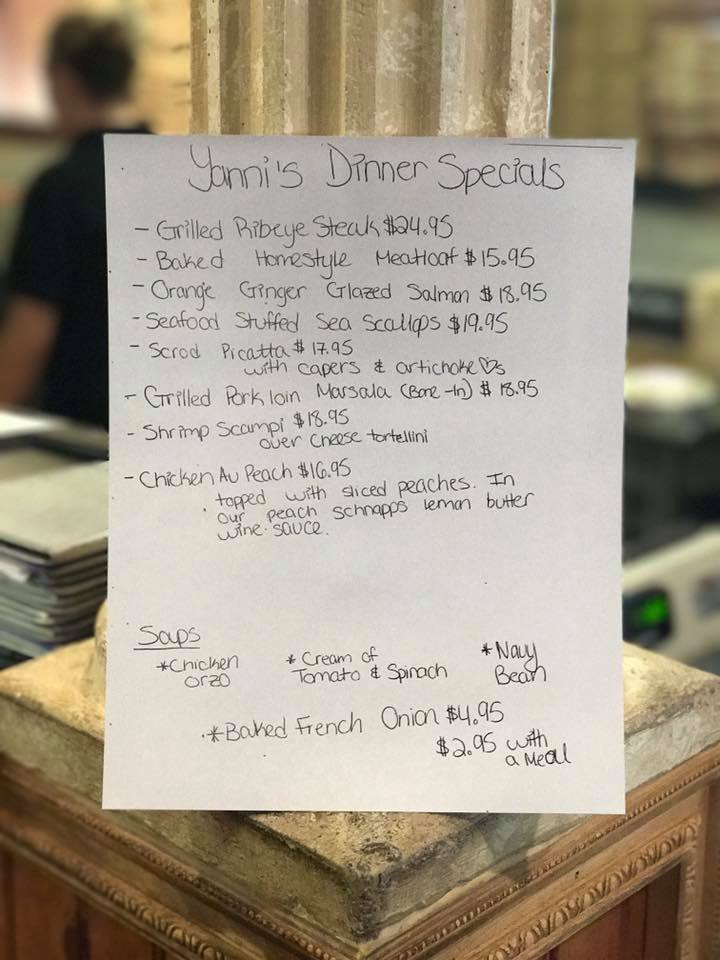 Yanni's Dinner Specials
- Grilled Ribeye Steak $24.95
- Baked Homestyle Meatloaf $15.95
- Orange Ginger Glazed Salmon $18.95
- Seafood Stuffed Sea Scallops $19.95
- Scrod Picatta $17.95
with capers & artichoke ♡s
- Grilled Pork loin Marsala (Bone-In) $18.95
- Shrimp Scampi $18.95
over cheese tortellini
- Chicken Au Peach $16.95
topped with sliced peaches. In
our peach schnapps lemon butter
wine sauce.
Soups
*Chicken orzo
* Cream of Tomato & Spinach
*Navy Bean
*Baked French Onion $4.95
$2.95 with
a Meal